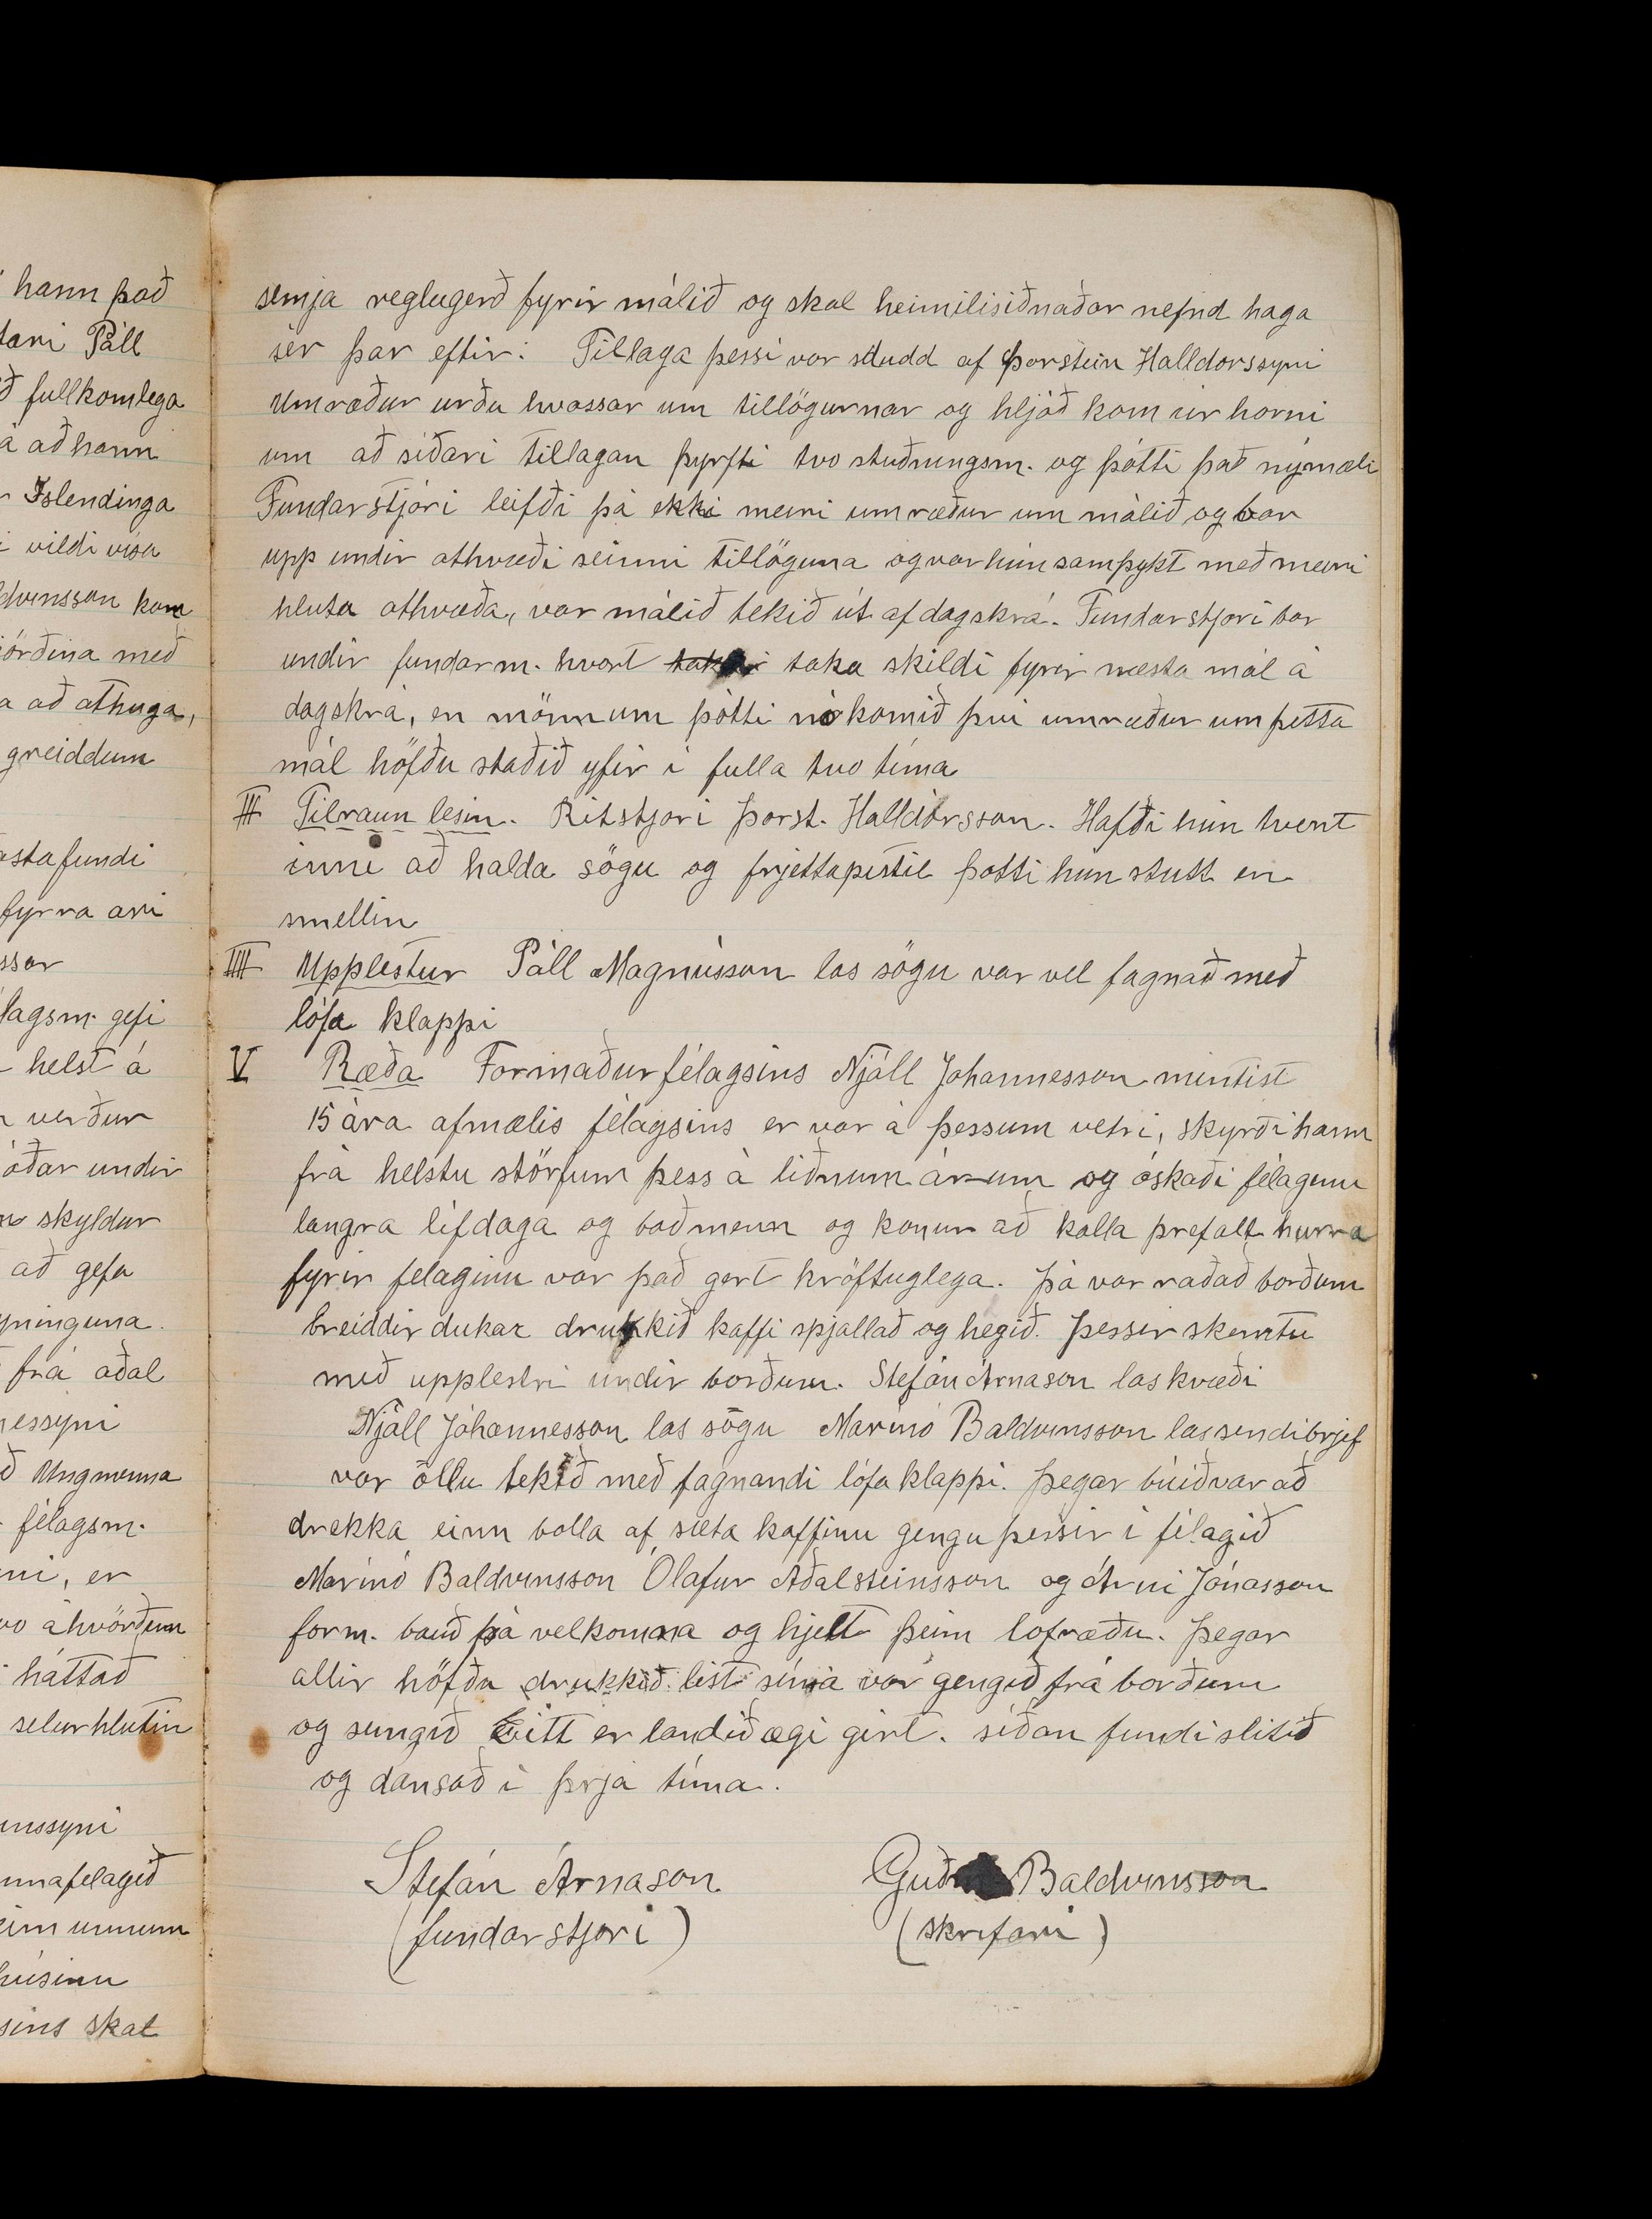 hann það
tari Páll
ð fullkomlega
á að hann
Íslendinga
i vildi vísa
ldvinsson kom
jörðina með
a að athuga,
greiddum
asta fundi
fyrra ári
ssar
lagsm. gefi
helst á
verður
óðar undir
skyldur
að gefa
yninguna.
frá aðal
nessyni
ð Ungmenna
félagsm.
ni, er
vo áhvörðun
háttað
selur hlutin
inssyni
nnafelagið
eim unnum
húsinu
sins skal
semja reglugerð fyrir málið og skal heimilisiðnaðar nefnd haga
sér þar eftir: Tillaga þessi var studd af Þorstein Halldorssyni
Umræður urðu hvassar um tillögurnar og hljóð kom úr horni
um að síðari tillagan þyrfti tvo stuðningsm. og þótti það nýmæli
Fundarstjóri leifði þá ekki meiri umræður um málið og bar
upp undir athvæði seinni tillöguna og var hún samþykt með meiri
hluta athvæða, var málið tekið út af dagskrá. Fundarstjori bar
undir fundarm. hvort taka skildi fyrir næsta mál á
dagskrá, en mönnum þótti nó komið því umræður um þetta
mál höfðu staðið yfir í fulla tvo tíma
III Tilraun lesin. Ritstjori Þorst. Halldórsson. Hafði hún tvent
inni að halda sögu og frjettapistil þotti hún stutt en
smellin
IIII Upplestur Páll Magnússon las sögu var vel fagnað með
lófa klappi
V Ræða Formaður félagsins Njáll Johannesson mintist
15 ára afmælis félagsins er var á þessum vetri, skyrði hann
frá helstu störfum þess á liðnum árum og óskaði félaginu
langra lífdaga og bað menn og konur að kalla þrefalt hurra
fyrir felaginu var það gert kröftuglega. Þá var raðað borðum
breiddir dukar drukkið kaffi spjallað og hegið. Þessir skemtu
með upplestri undir borðum. Stefán Árnason las kvæði
Njáll Jóhannesson las sögu Marínó Baldvinsson las sendibrjef
var öllu tekið með fagnandi lófa klappi. Þegar búið var að
drekka einn bolla af sæta kaffinu gengu þessir í félagið
Marínó Baldvinsson Ólafur Aðalsteinsson og Árni Jónasson
form. bauð þá velkomna og hjelt þeim lofræðu. Þegar
allir höfðu drukkið list sína var gengið frá borðum
og sungið Eitt er landið ægi girt. síðan fundi slitið
og dansað í þrja tíma.
Stefán Árnason Baldvinsson
(fundarstjori) (skrifari)